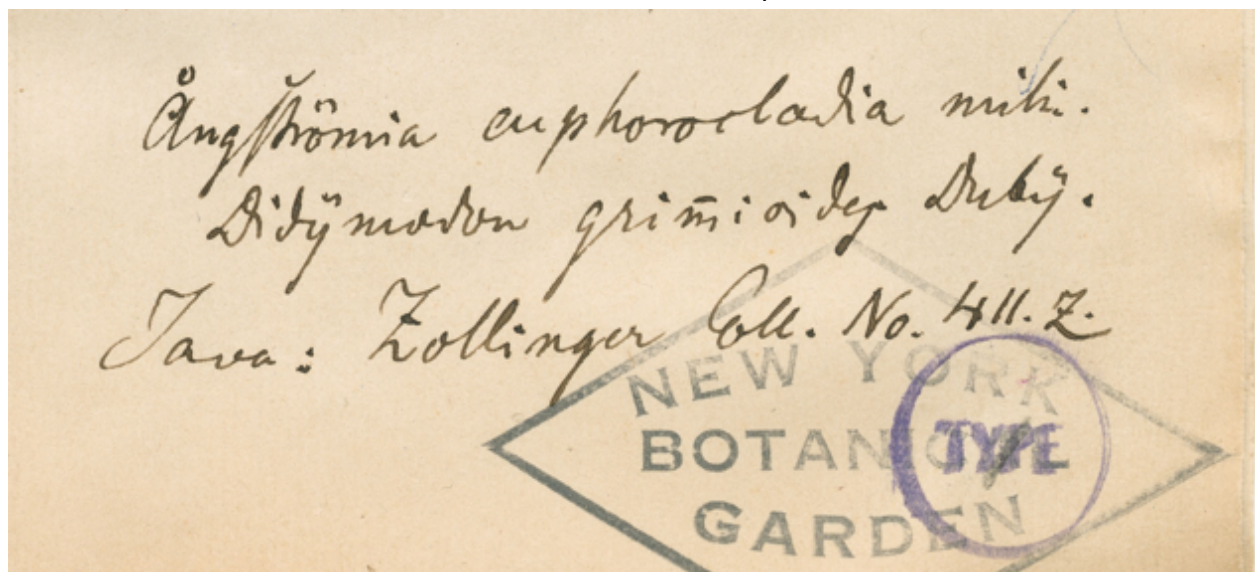 Ångströmia euphorocladia mihi.
Didÿmodon grim̄ioides Dubÿ.
Java: Zollinger Coll. No. 411. Z.
NEW YORK
BOTANICAL
GARDEN
TYPE